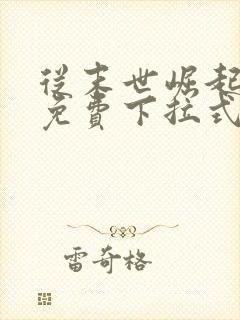 從末世崛起
免費下拉式
雷奇格